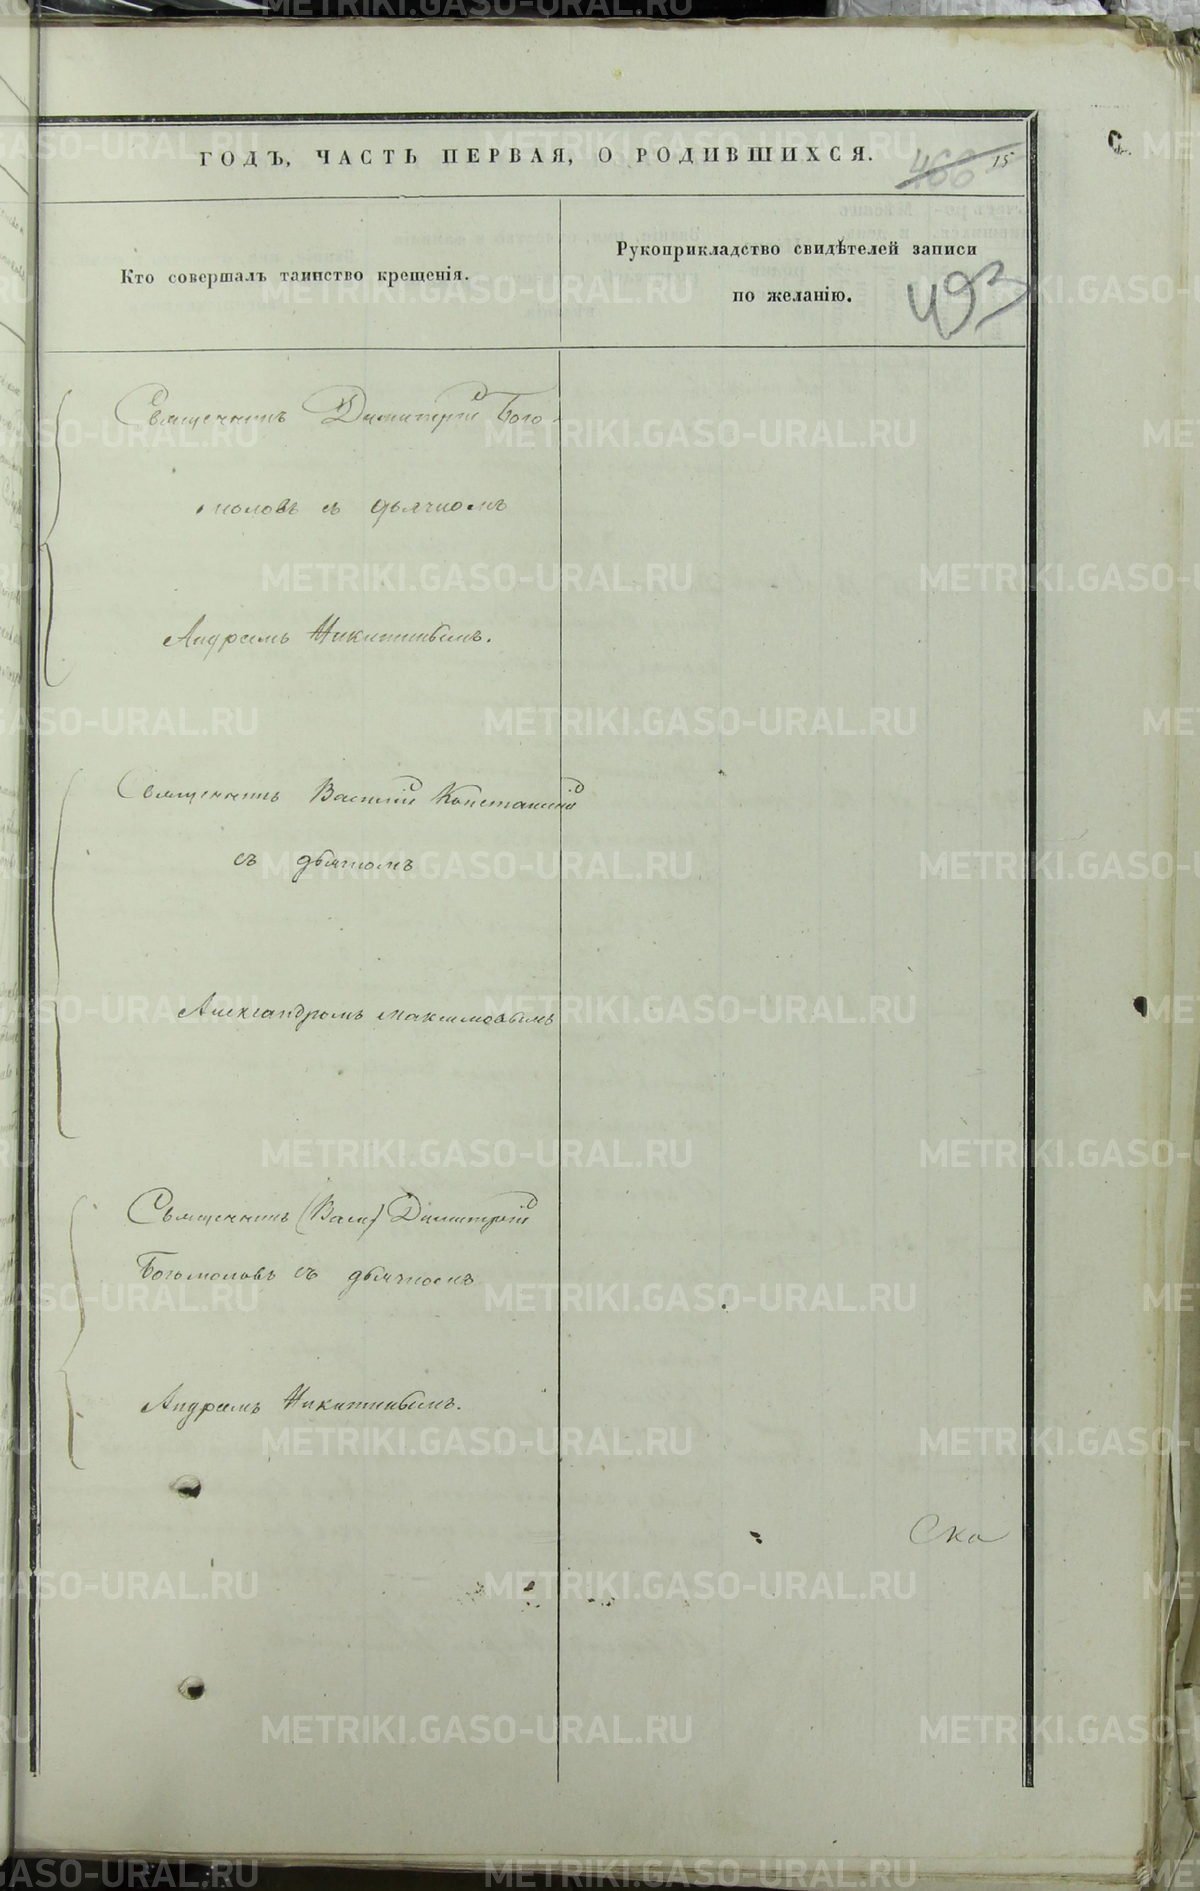 ГОДЪ, ЧАСТЬ ПЕРВАЯ, О РОДИВШИХСЯ.
466 15
Кто совершалъ таинство крещенія.
Рукоприкладство свидѣтелей записи
по желанію.
493
Священникъ Димитрій Бого-
моловъ съ дьячкомъ
Андреемъ Никитинымъ.
Священникъ Василій Констанскій
съ дьячкомъ
Александромъ Максимовымъ
Священникъ (Васи) Димитрій
Богомоловъ съ дьячкомъ
Андреемъ Никитинымъ.
Ска
METRIKI.GASO-URAL.RU